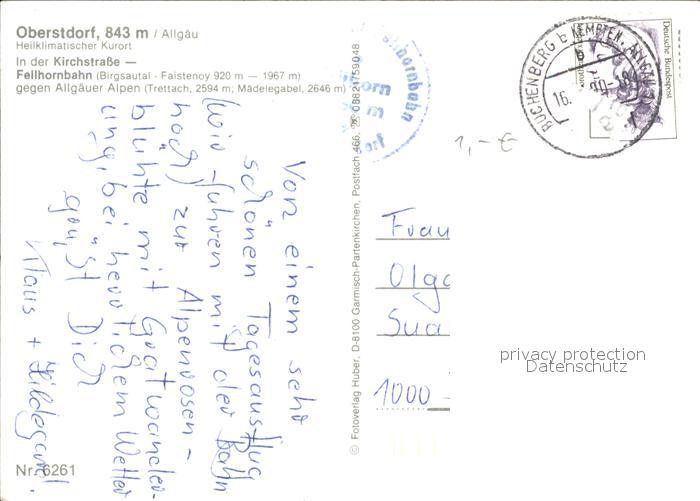 Oberstdorf, 843 m / Allgäu
Heilklimatischer Kurort
In der Kirchstraße —
Fellhornbahn (Birgsautal - Faistenoy 920 m — 1967 m)
gegen Allgäuer Alpen (Trettach, 2594 m; Mädelegabel, 2646 m)
Von einem sehr
schönen Tagesausflug
(wir fuhren mit der Bahn
hoch) zur Alpenrosen-
blühte mit Gratwander-
ung, bei herrlichem Wetter
grüßt Dich
Klaus + Hildegard.
Nr. 6261
© Fotoverlag Huber, D-8100 Garmisch-Partenkirchen, Postfach 466, ☎ 08821/59048
BUCHENBERG b KEMPTEN, ALLGÄU
b
16.
Deutsche Bundespost
1,- €
Frau
Olga
1000 -
privacy protection
Datenschutz